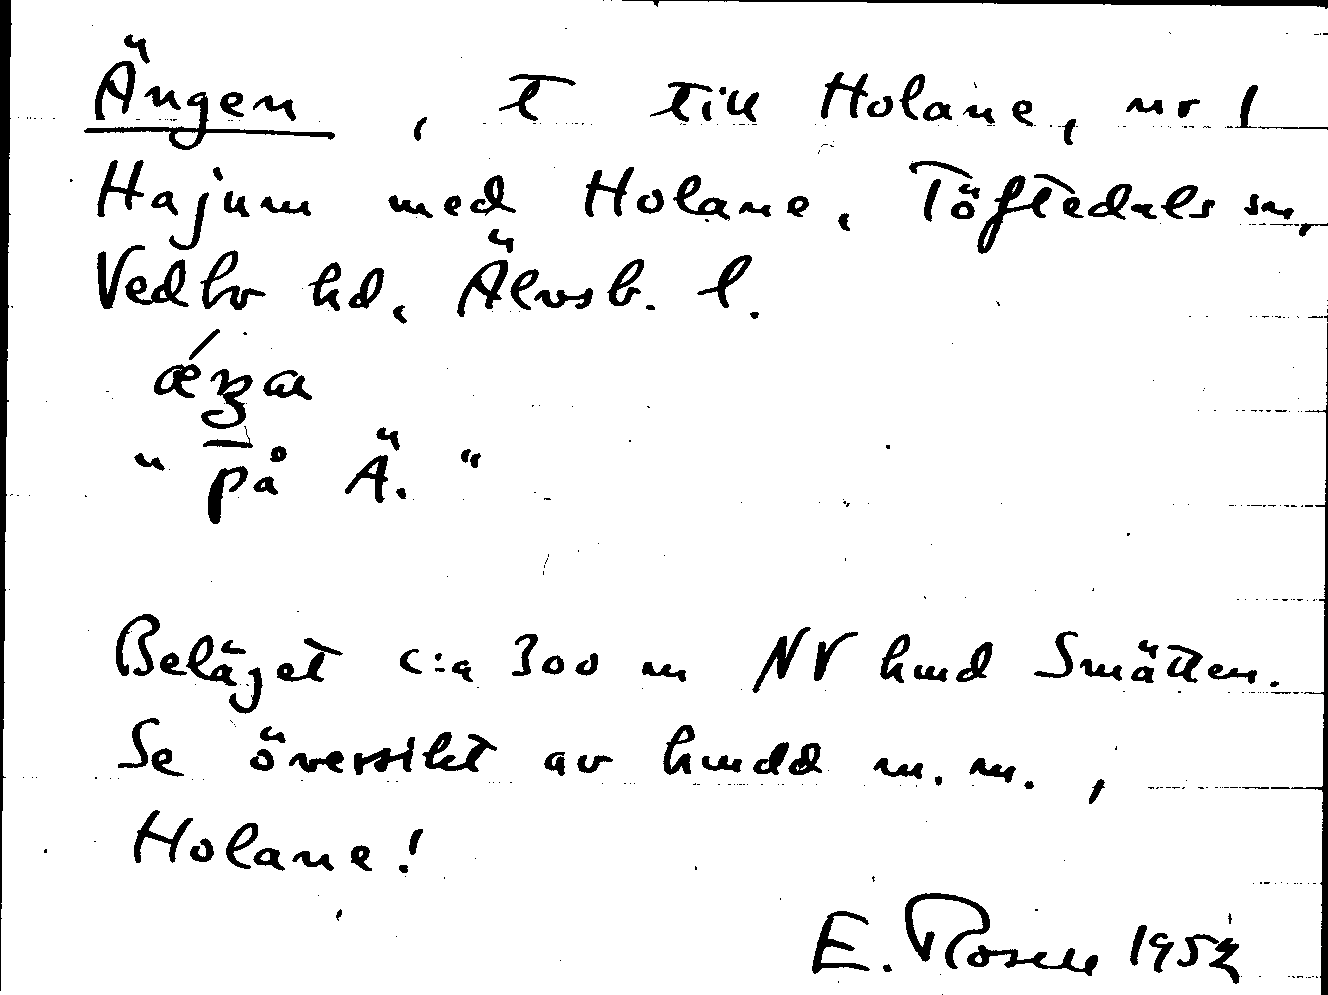 Ängen, t till Holane, nr 1
Hajum med Holane, Töftedals sn,
Vedbo hd, Älvsb. l.
"på Ä."
Beläget c:a 300 m NV hmd Smätten.
Se översikt av hmdd m.m.,
Holane!
E. Rosell 195